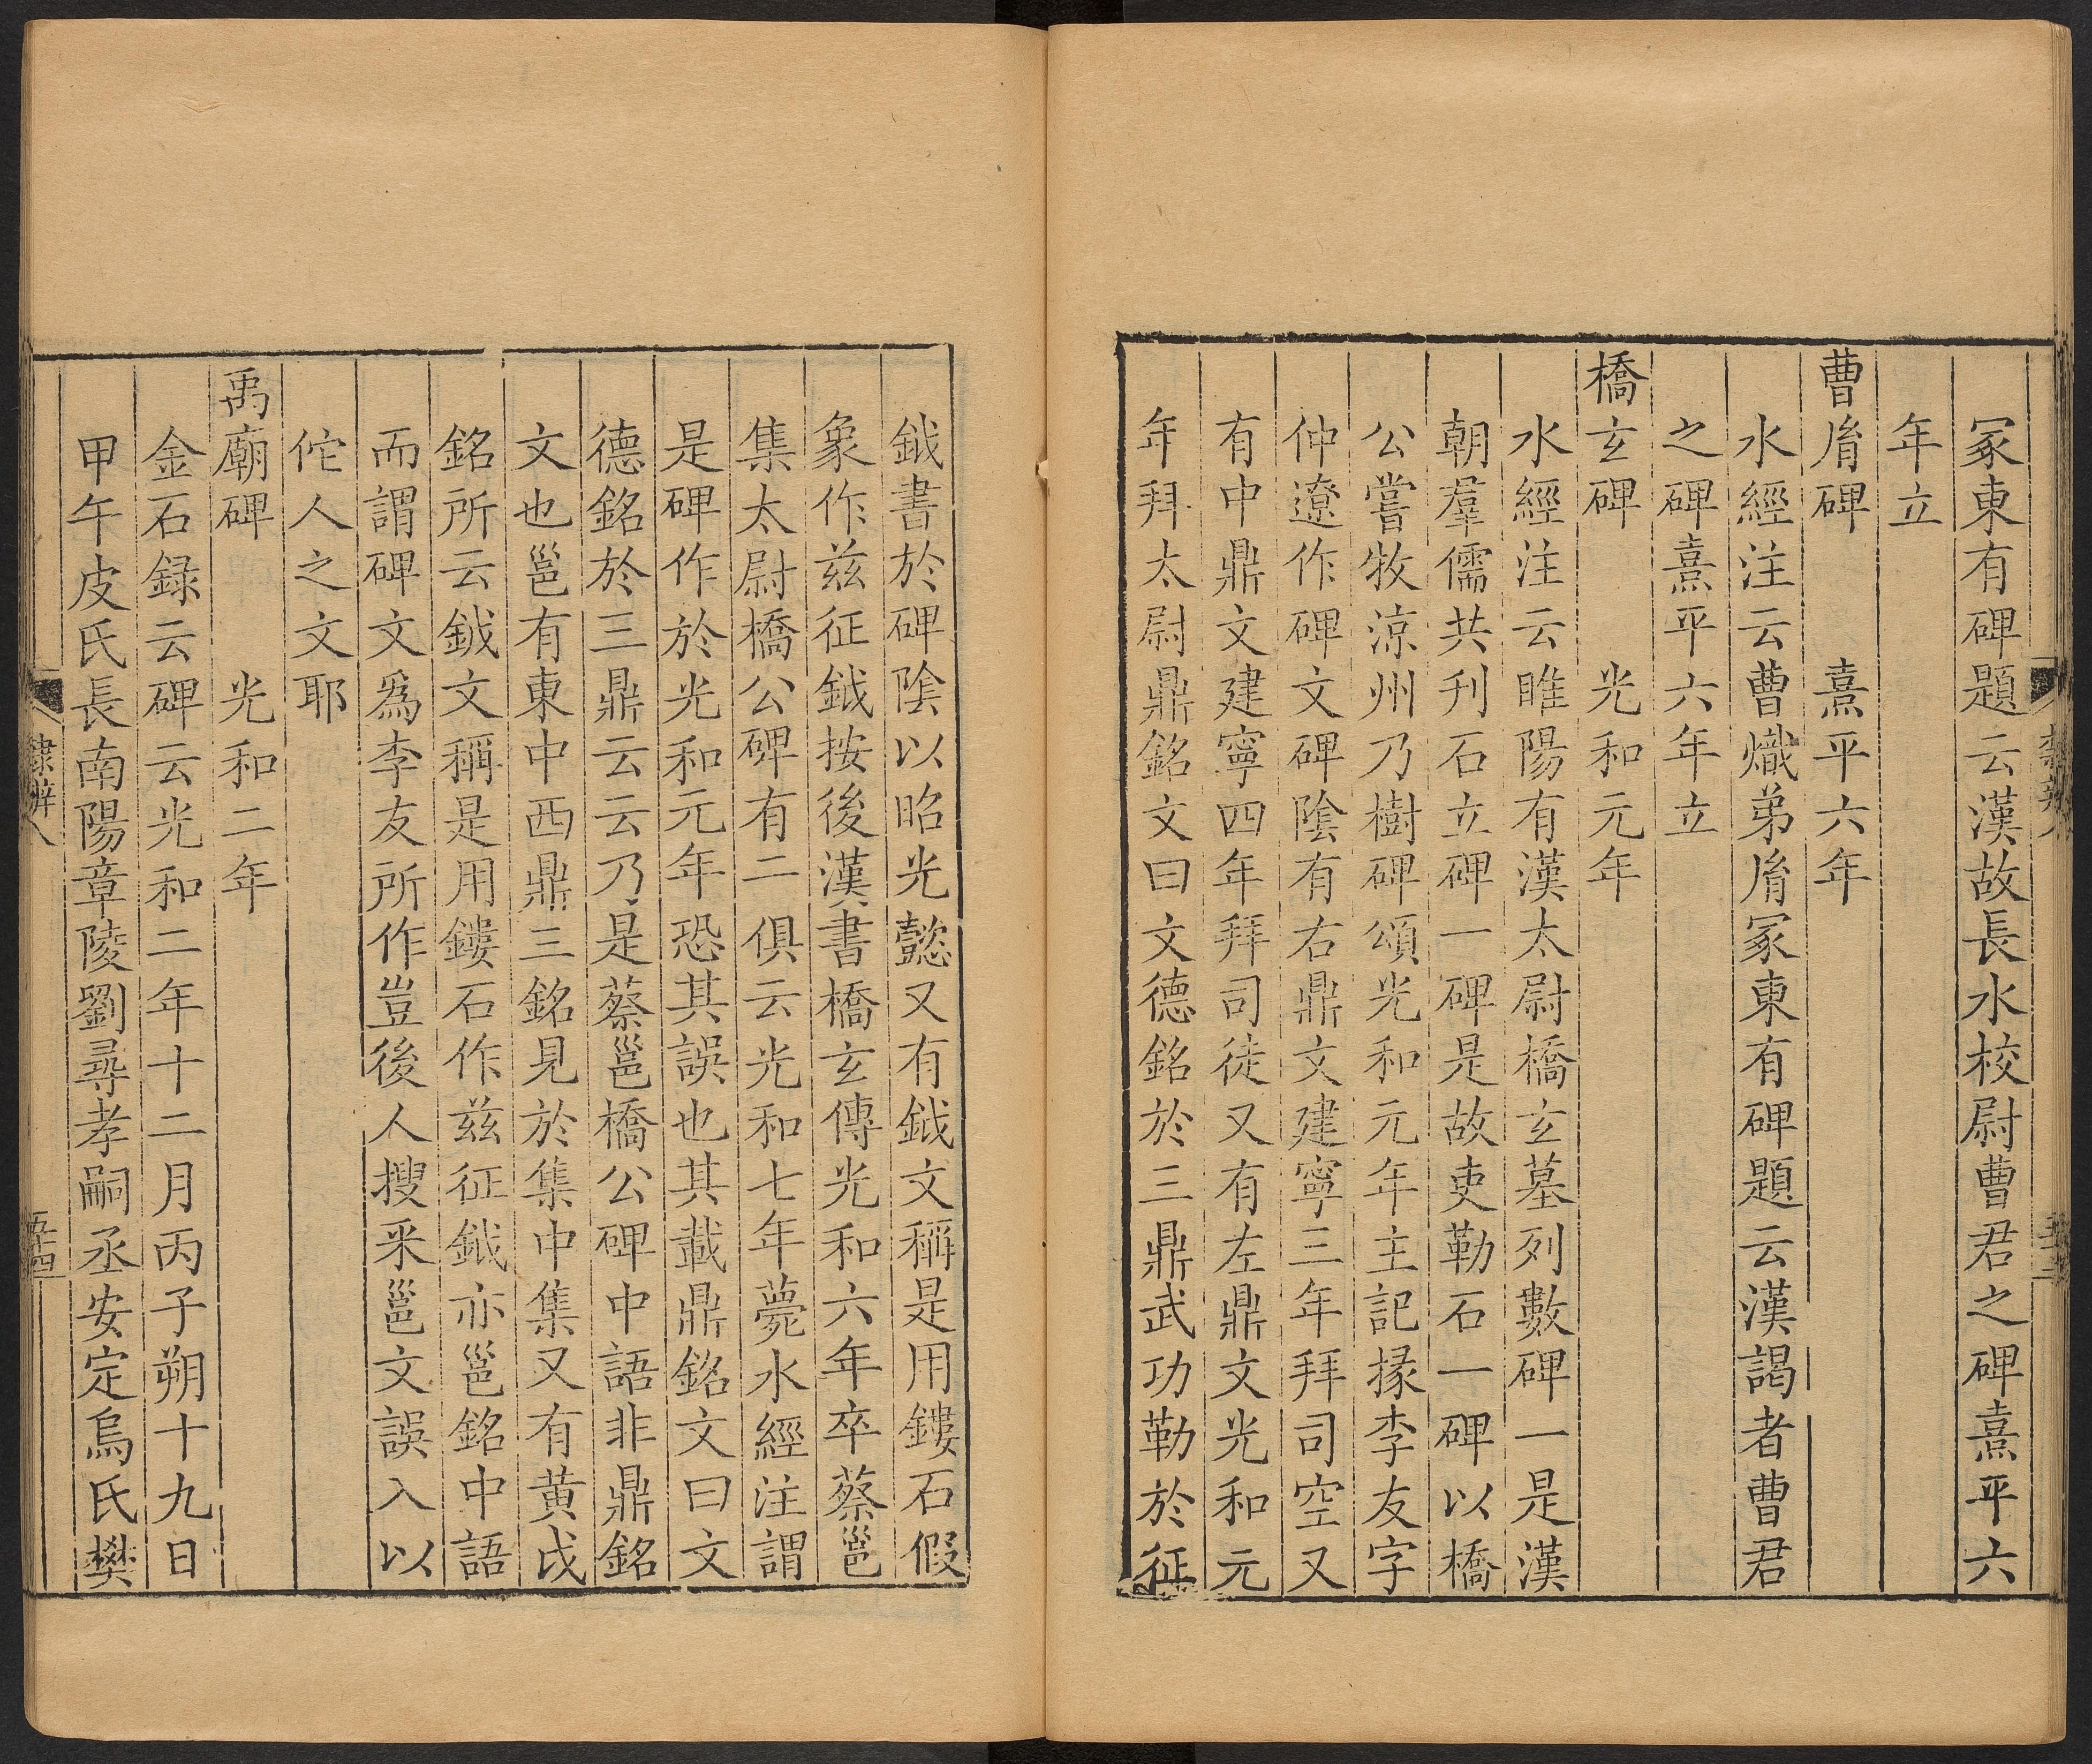 冢東有碑題云漢故長水校尉曹君之碑熹平六
年立
曹胤碑　熹平六年
水經注云曹熾弟胤冢東有碑題云漢謁者曹君
之碑熹平六年立
橋玄碑　光和元年
水經注云睢陽有漢太尉橋玄墓列數碑一是漢
朝羣儒共刋石立碑一碑是故吏勒石一碑以橋
公嘗牧涼州乃樹碑頌光和元年主記掾李友字
仲遼作碑文碑陰有右鼎文建寧三年拜司空又
有中鼎文建寧四年拜司徒又有左鼎文光和元
年拜太尉鼎銘文曰文德銘於三鼎武功勒於征
鉞書於碑陰以昭光懿又有鉞文稱是用鏤石假
象作兹征鉞按後漢書橋玄傳光和六年卒蔡邕
集太尉橋公碑有二俱云光和七年薨水經注謂
是碑作於光和元年恐其誤也其載鼎銘文曰文
德銘於三鼎云云乃是蔡邕橋公碑中語非鼎銘
文也邕有東中西鼎三銘見於集中集又有黄戉
銘所云鉞文稱是用鏤石作兹征鉞亦邕銘中語
而謂碑文爲李友所作豈後人搜采邕文誤入以
佗人之文耶
禹廟碑　光和二年
金石録云碑云光和二年十二月丙子朔十九日
甲午皮氏長南陽章陵劉尋孝嗣丞安定烏氏樊
隸辨八
五十四